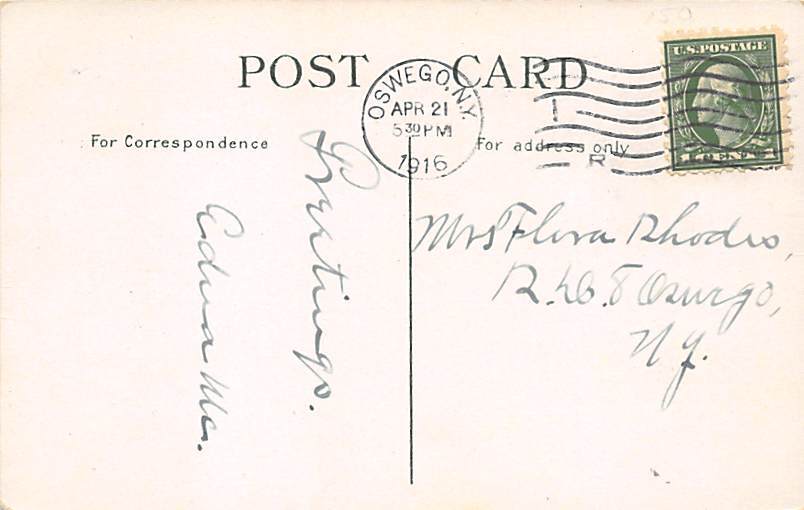 POST CARD
OSWEGO, N.Y.
APR 21
5 30 PM
1916
U.S. POSTAGE
1 CENT 1
R
For Correspondence
For address only
Greetings.
Edna Mc.
Mrs Flora Rhodes,
R.D. 8 Oswego,
N.Y.